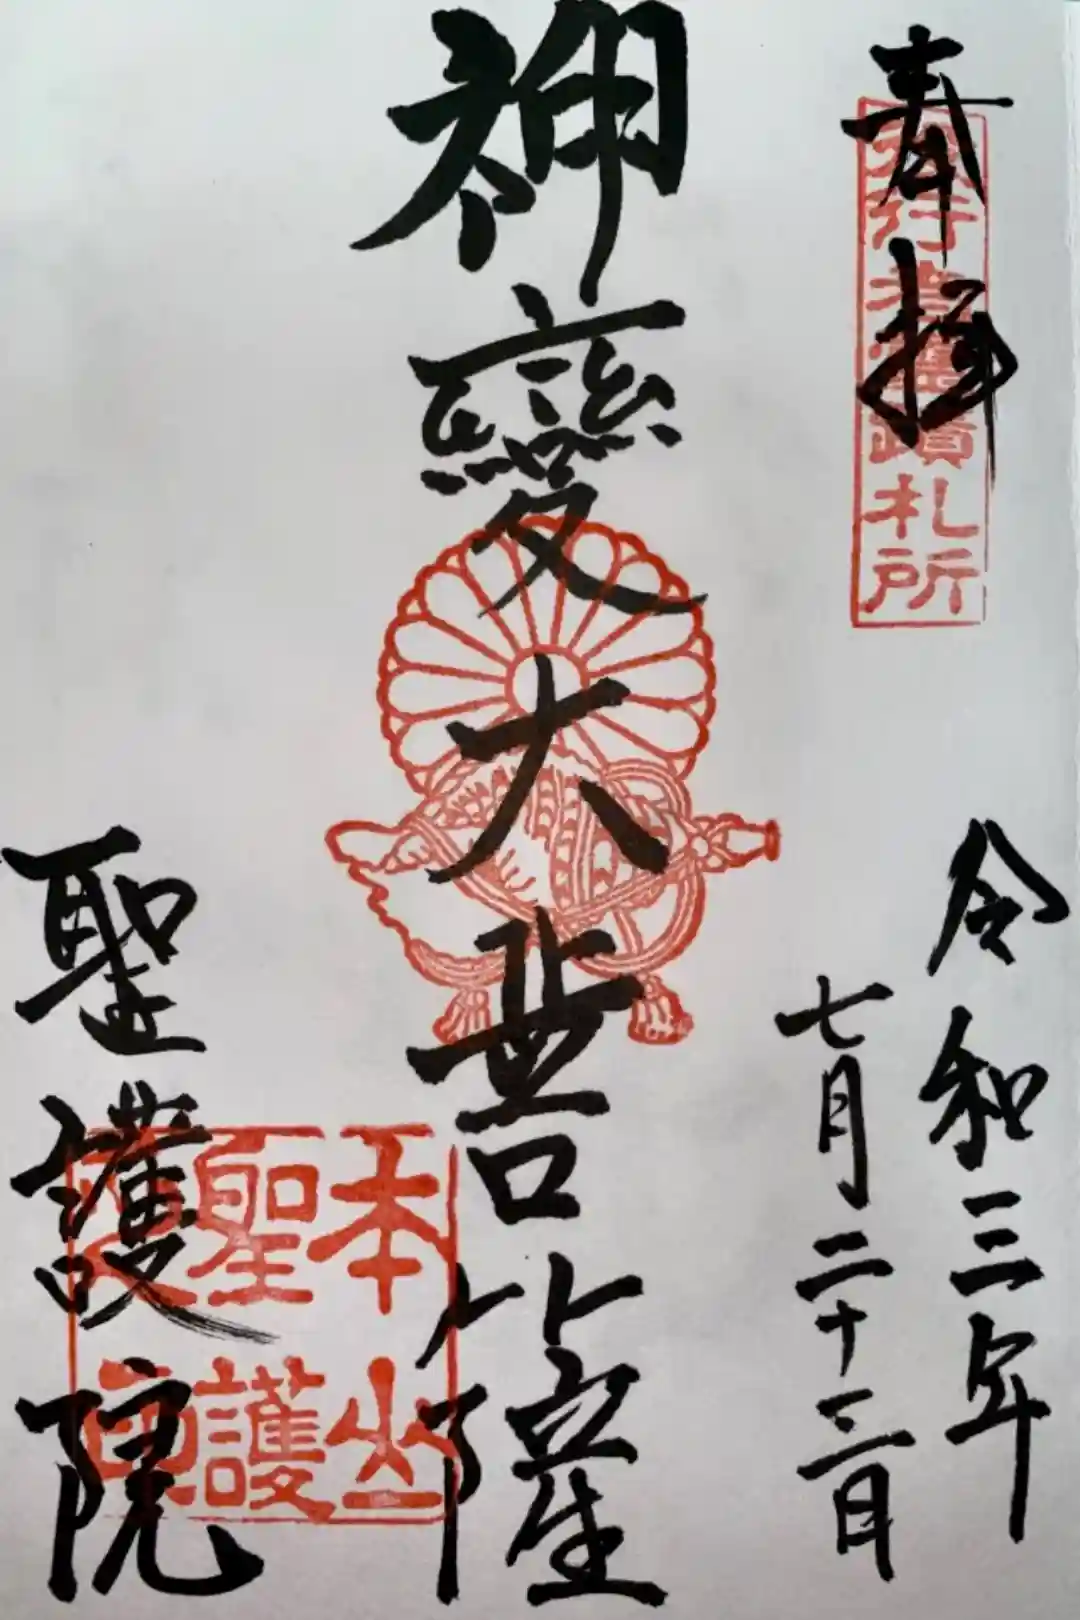 奉拝
役行者霊蹟札所
令和三年
七月二十三日
神變大菩薩
本山
聖護
聖護院